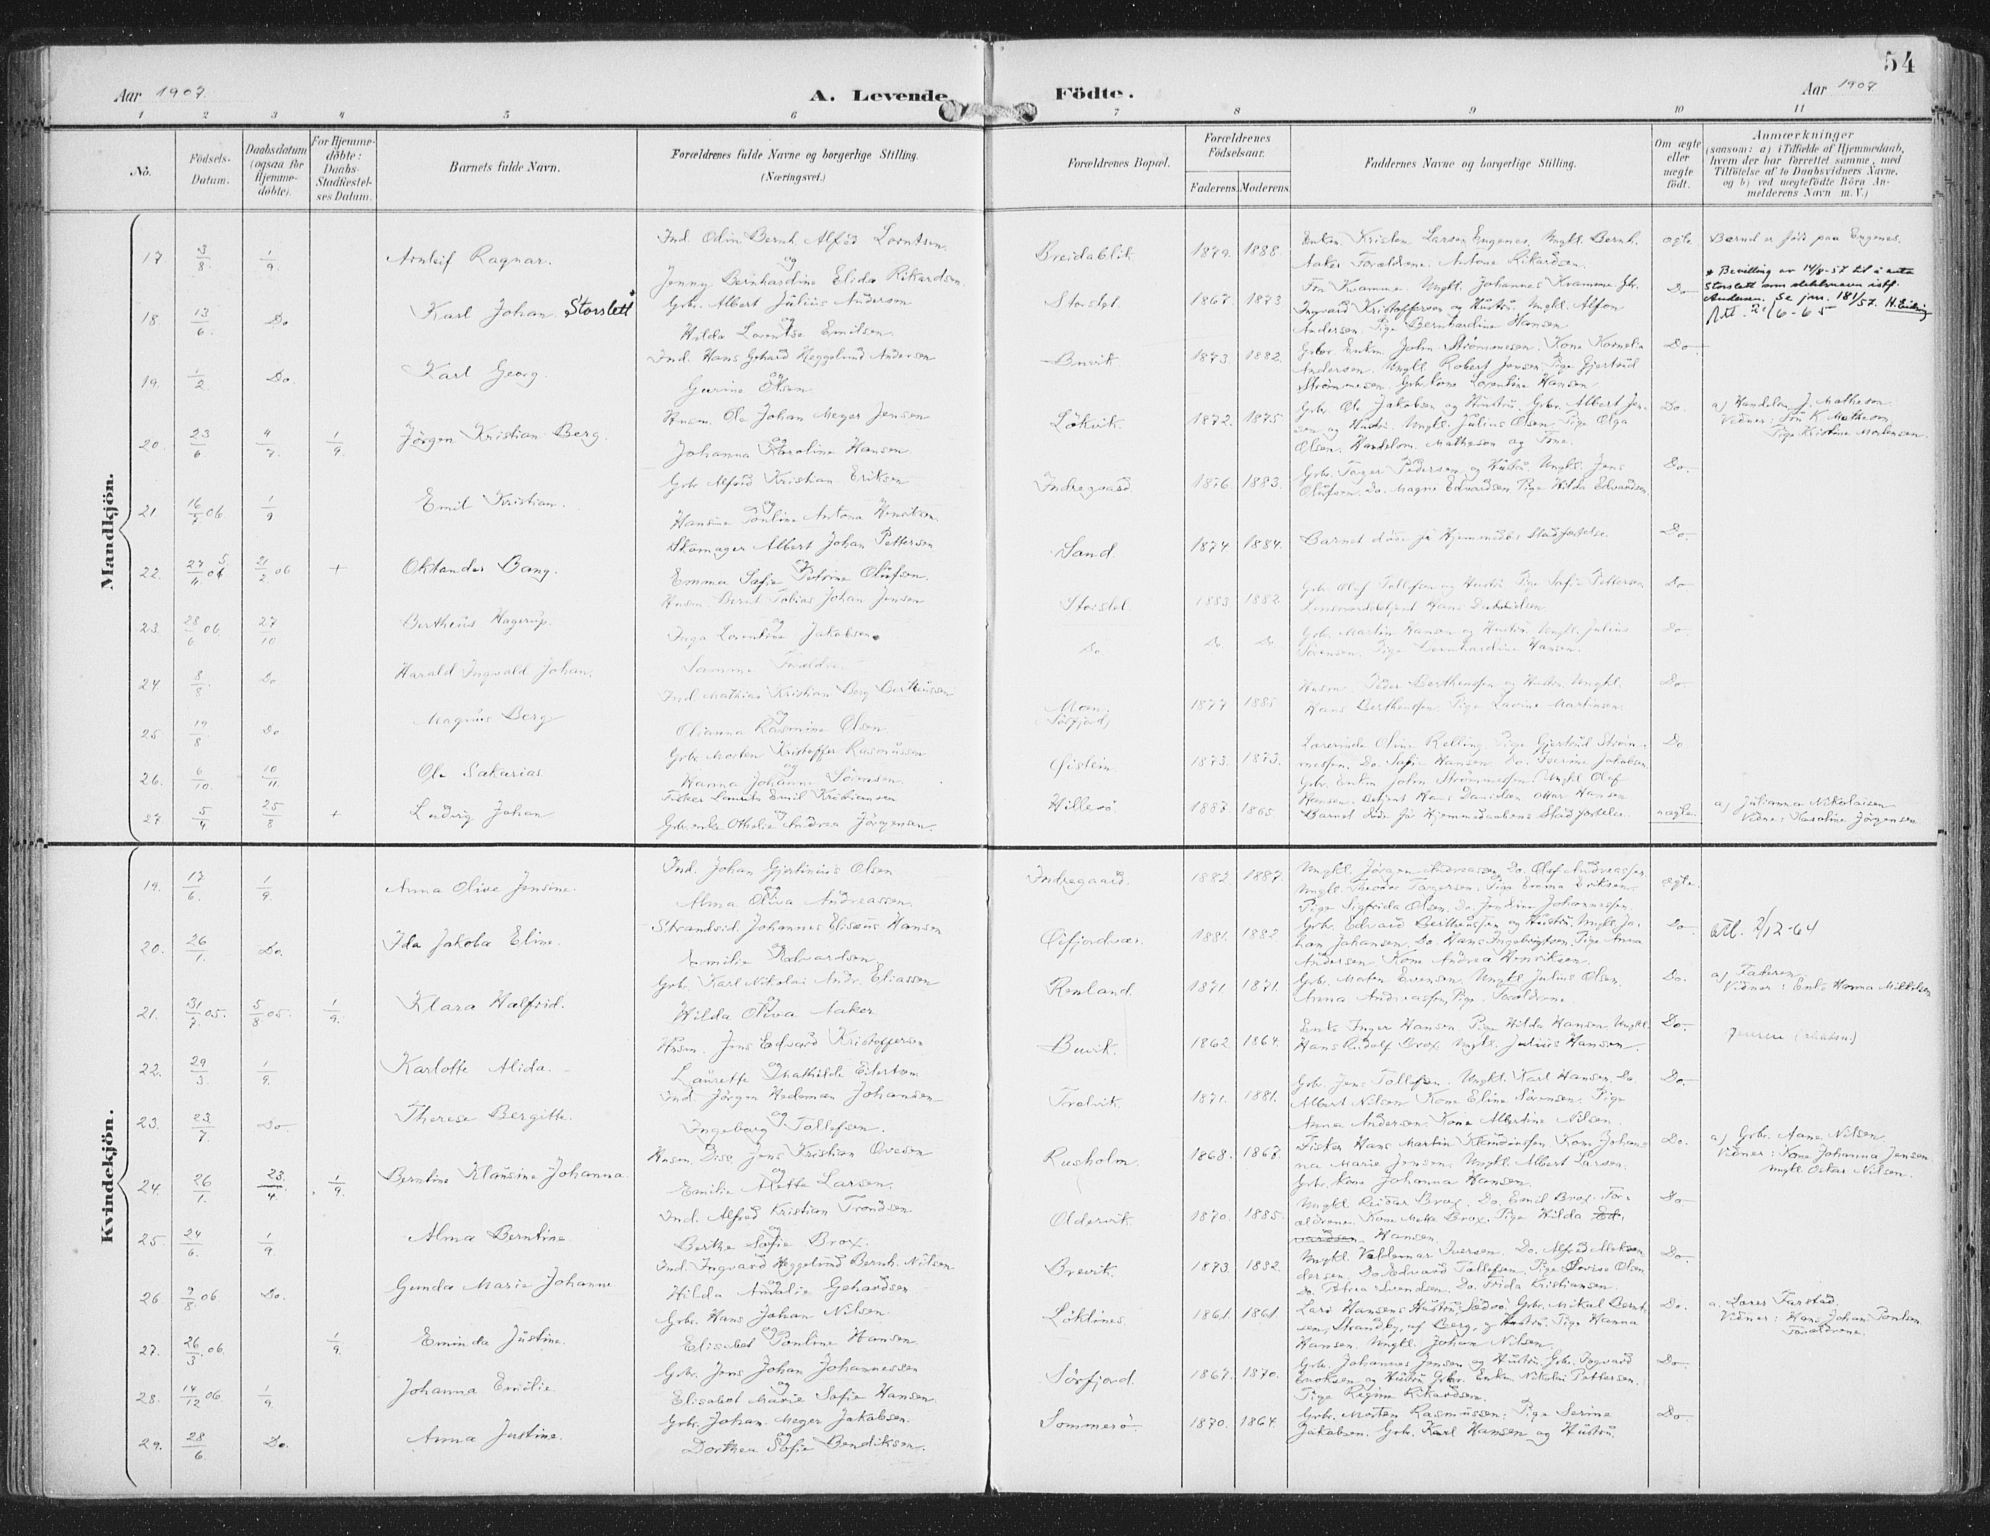 54
Aar 1907.
A. Levende Födte.
Aar 1907.
1 2 3 4 5 6 7 8 9 10 11
No.
Födsels-Datum.
Daabsdatum (ogsaa for Hjemmedöbte).
For Hjemmedöbte: Daabs-Stadfæstelses Datum.
Barnets fulde Navn.
Forældrenes fulde Navne og borgerlige Stilling. (Næringsvei.)
Forældrenes Bopæl.
Forældrenes Födselsaar.
Faderens. Moderens.
Faddernes Navne og borgerlige Stilling.
Om ægte eller uægte födt.
Anmærkninger
(saasom: a) i Tilfælde af Hjemmedaab, hvem der har forrettet samme, med Tilföielse af to Daabsvidners Navne, og b) ved uægtefödte Börn Anmelderens Navn m. V.)
Mandkjön.
17 3/8. 1/9. Arnleif Ragnar. Ind. Odin Bernh. Alfred Lorntsen og Jenny Bernhardine Elida Rikardsen. Breidablik 1879. 1888. Enkm. Kristen Larsen Engenes. Ungkl. Bernh. Aaker Forældrene. Antone Rikardsen. ægte. Barnet er født paa Engenes.
18 13/6. Do Karl Johan. Storslett Grb. Albert Julius Andersen og Hilda Lorentse Emilsen. Storslet. 1867. 1873 Fru Kvamme. Ungkl. Johannes Kvamme Gb. Ingvard Kristoffersen og Hustru. Ungkl. Alfon Andersen. Pige Bernhardine Hansen Do Bevilling av 14/8-57 til å anta Storslett som slektsnavn istf. Andersen. Se jnr. 181/57. Att. 21/6-65
19. 1/2 Do. Karl Georg. Ind. Hans Gehard Heggelund Andersen og Gurine Olsen Buvik 1873. 1882. Grbr Enkm. John Strømmesen. Kone Kornelia Andersen. Ungkl Robert Jensen Pige Gjertrud Strømmesen. Grb. kone Lorentine Hansen Do.
20. 23/6 4/7. 1/9. Jörgen Kristian Berg. Husm. Ole Johan Meyer Jensen og Johanna Karoline Hansen Lökvik. 1872. 1875. Grb. Ole Jakobsen og Hustru. Grbr. Albert Jensen og Hustru. Ungkl. Julius Olsen. Pige Olga Olsen. Handelsm. Matheson og Frue. Do. a) Handelsm J. Matheson Vidner: Fru K. Matheson Pige Kristine Mortensen.
21 16/5 06 1/9 Emil Kristian. Grb Alfred Kristian Eriksen og Hansine Pauline Antona Henriksen. Indregaard. 1876. 1883. Grb. Torger Pedersen og Hustru. Ungkl. Jens Olufsen. Do. Magne Edvardsen Pige Hilda Edvardsen. Do.
22. 27/4 06 21/2 06 + Oktander Bang. Skomager Albert Johan Pettersen og Emma Sofie Petrine Olufsen. Sand. 1874. 1884. Barnet døde før Hjemmedaabs Stadfæstelse. Do.
23. 28/6 06. 27/10 Bertheus Hagerup. Husm. Bernt Tobias Johan Jensen og Inga Lorentine Jakobsen. Storslet 1883 1882. Grb. Olaf Tollefsen og Hustru Pige Sofie Pettersen Do
24. 8/8. Do Harald Ingvald Johan. Samme Forældre Do Do Do Grb. Martin Hansen og Hustru. Ungkl. Julius Sørensen. Pige Bernhardine Hansen. Do.
25. 19/8 Do Magnus Berg Ind Mathias Kristian Berg Bertheussen og Olianna Rasmine Olsen. Moen (Sörfjord) 1877 1885 Husm. Peder Bertheussen og Hustru. Ungkl. Hans Bertheussen. Pige Lavine Martinsen. Do
26. 6/10. 10/11 Ole Sakarias. Grb. Morten Kristoffer Rasmussen og Hanna Johanne Sörensen. Gistein 1873. 1873. Lærerinde Oline Relling. Pige Gjertrud Strømmesen. Do. Sofie Hansen Do. Iverine Jakobsen. Grb. Enkm John Strømmesen. Ungkl Olaf Hansen. Do
27 5/4 25/8 + Ludvig Johan Fisker Laurits Emil Kristiansen og Grb.enke Othelie Andrea Jörgensen. Hillesö 1887 1865. Barnet døde før Hjemmedaabens Stadfæstelse. uægte. a) Julianna Nikolaisen Vidne: Karoline Jörgensen
Kvindekjön.
19. 17/6. 1/9. Anna Olive Jensine. Ind. Johan Gjertinius Olsen og Alma Oliva Andreassen. Indregaard. 1882. 1887. Ungkl. Jörgen Andreassen, Do. Olaf Andreassen Ungkl. Theodor Torgersen. Pige Emma Eriksen. Pige Sigfrida Olsen. Do. Jendine Johannessen. ægte.
20. 26/1. Do. Ida Jakoba Eline. Strandsid. Johannes Eliseus Hansen og Emilie Edvardsen. Öifjordvær. 1881. 1882 Grb. Edvard Bertheussen og Hustru. Ungkl. Johan Johansen. Do. Hans Ingebrigtsen. Pige Anna Andersen. Kone Andrea Henriksen. Do. att. 2/12-64
21. 31/7 05. 5/8 05. 1/9. Klara Halfrid. Grb. Karl Nikolai Andr. Eliassen og Hilda Oliva Aaker Renland. 1871 1871. Grb. Maten Evensen. Ungkl Julius Olsen. Anna Andreassen Pige. Forældrene. Do. a) Faderen. Vidner: Enke Hanna Mikkelsen
22. 29/3. 1/9. Karlotte Alida. Husm. Jens Edvard Kristoffersen og Laurette Mathilde Eilertsen Buvik. 1862 1864. Enke Inger Hansen. Pige Hilda Hansen Ungkl. Hans Rudolf Brox Ungkl. Julius Hansen. Do.
23. 23/7. Do. Therese Bergitte. Ind. Jörgen Hedeman Johansen og Ingeborg Tollefsen. Trolvik. 1871. 1881. Grb. Jens Tollefsen. Ungkl. Karl Hansen. Do. Albert Nilsen Kone Eline Sörensen. Pige Anna Andersen. Kone Albertine Nilsen. Do.
24. 26/1. 23/4. 1/9. Berntine Klausine Johanna. Husm. Dise Jens Kristian Ovesen og Emilie Alette Larsen. Rusholm 1868. 1867. Fisker Hans Martin Klausiussen Kone Johanna Marie Jensen. Ungkl. Albert Larsen. Grb. kone Johanna Hansen. Do. a) Grb. Aane Nilsen Vidner: Kone Johanna Jensen Ungkl Oskar Nilsen.
25. 24/6. 1/9 Alma Berntine Ind. Alfred Kristian Trondsen og Berthe Sofie Brox. Oldervik. 1870. 1885. Ungkl Reidar Brox. Do. Emil Brox. Forældrene. Kone Meta Brox. Pige Hilda Edvardsen. Hansen. Do
26 9/8. 06. Do. Gunda Marie Johanne Ind. Ingvard Heggelund Bernh. Nilsen og Hilda Amalie Gehardsen Brevik. 1873. 1882. Ungkl. Valdemar Iversen. Do. Alfred Aleksandersen. Do Edvard Tollefsen. Pige Lovise Olsen Do. Petrea Svendsen. Do. Frida Kristiansen. Do
27. 26/3. 06. 1/9. Eminda Justine. Grb. Hans Johan Nilsen og Elisabet Pauline Hansen. Löktines. 1861. 1861. Lars Hansens Hustru, Sedvo. Grb. Mikal Berntsen, Strandby, af Berg, og Hustru. Pige Hanna Hansen. Ungkl. Johan Nilsen. Do. a. Lærer Farstad. Vidner: Hans Johan Forældrene.
28. 14/12 06 1/9. Johanna Emilie. Grb. Jens Johan Johannessen og Elisabet Marie Sofie Hansen. Sörfjord. 1867. 1870. Grb. Johannes Jensen og Hustru Grb. Ingvard Enoksen og Hustru Grbr. Enkm. Nikolai Pettersen. Pige Regine Rikardsen. Do
29. 28/6 Do. Anna Justine. Grb. Johan Meyer Jakobsen. og Dorthea Sofie Bendiksen. Sommerö. 1870. 1864. Grb. Morten Rasmussen. Pige Serine Jakobsen. Grb. Karl Hansen og Hustru. Do